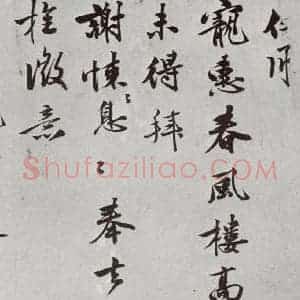 仁
寵惠春風樓高
未得拜
謝悚〻息〻奉去
微意
Shufaziliao.com